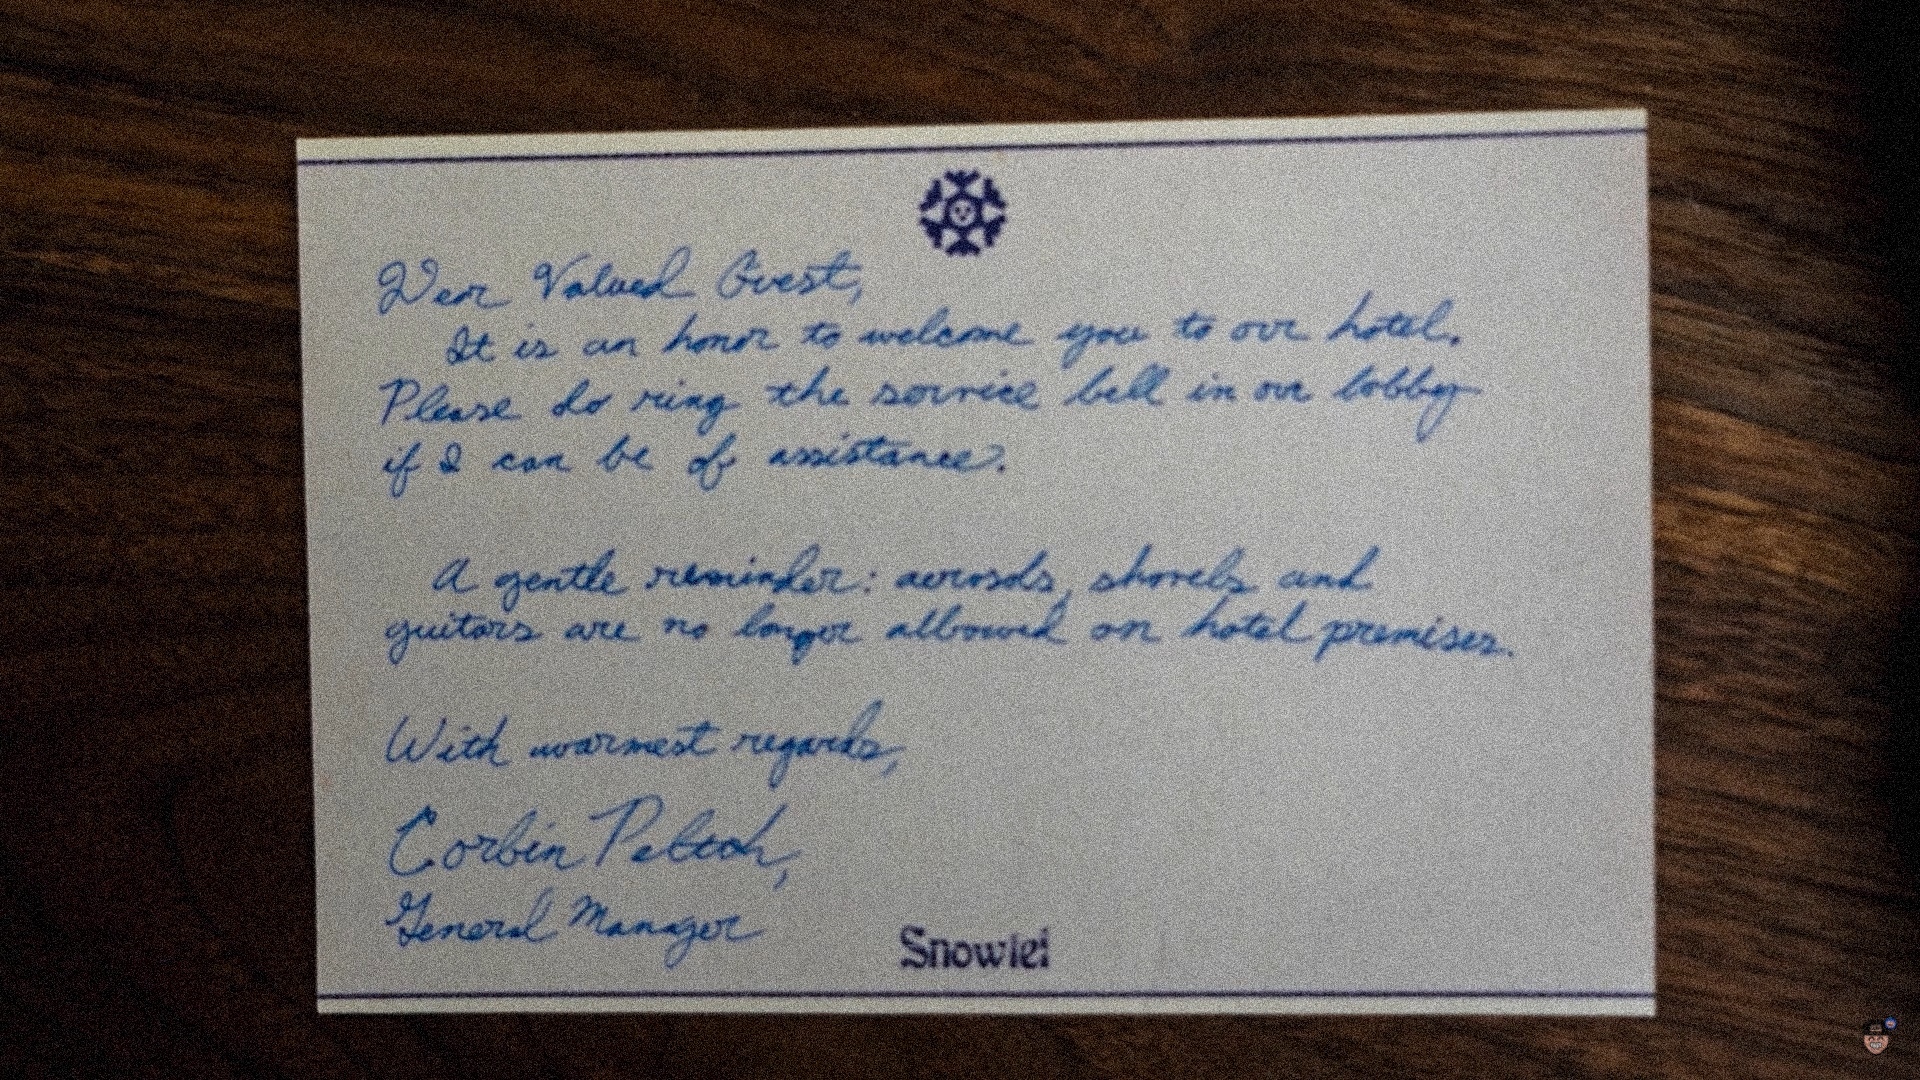 Dear Valued Guest,
It is an honor to welcome you to our hotel.
Please do ring the service bell in our lobby
if I can be of assistance.
A gentle reminder: aerosols, shovels and
guitars are no longer allowed on hotel premises.
With warmest regards,
Corbin
General Manager